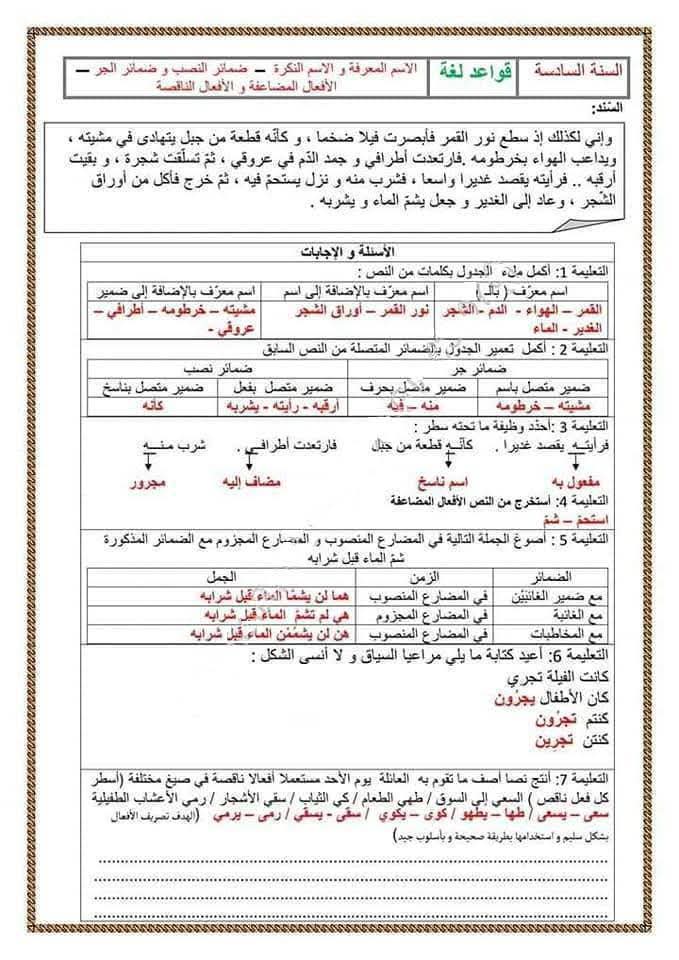 السنة السادسة
قواعد لغة
الاسم المعرفة و الاسم النكرة – ضمائر النصب و ضمائر الجر –
الأفعال المضاعفة و الأفعال الناقصة
السّند:
وإني لكذلك إذ سطع نور القمر فأبصرت فيلا ضخما ، و كأنّه قطعة من جبل يتهادى في مشيته ،
ويداعب الهواء بخرطومه .فارتعدت أطرافي و جمد الدّم في عروقي ، ثمّ تسلّقت شجرة ، و بقيت
أرقبه .. فرأيته يقصد غديرا واسعا ، فشرب منه و نزل يستحمّ فيه ، ثمّ خرج فأكل من أوراق
الشّجر ، وعاد إلى الغدير و جعل يشمّ الماء و يشربه .
الأسئلة و الإجابات
التعليمة 1: أكمل ملء الجدول بكلمات من النص :
اسم معرّف ( بألـ ) اسم معرّف بالإضافة إلى اسم اسم معرّف بالإضافة إلى ضمير
القمر – الهواء - الدم - الشجر نور القمر – أوراق الشجر مشيته – خرطومه – أطرافي –
الغدير - الماء عروقي -
التعليمة 2 : أكمل تعمير الجدول بالضمائر المتصلة من النص السابق
ضمائر جر ضمائر نصب
ضمير متصل باسم ضمير متصل بحرف ضمير متصل بفعل ضمير متصل بناسخ
مشيته – خرطومه منه – فيه أرقبه - رأيته - يشربه كأنه
التعليمة 3 : أحدّد وظيفة ما تحته سطر :
فرأيتـــه يقصد غديرا . كأنّـــه قطعة من جبل فارتعدت أطرافـي . شرب منـــه
مفعول به اسم ناسخ مضاف إليه مجرور
التعليمة 4: أستخرج من النص الأفعال المضاعفة
استحمّ – شمّ
التعليمة 5 : أصوغ الجملة التالية في المضارع المنصوب و المضارع المجزوم مع الضمائر المذكورة
شمّ الماء قبل شرابه
الضمائر الزمن الجمل
مع ضمير الغائبَيْن في المضارع المنصوب هما لن يشمّا الماء قبل شرابه
مع الغائبة في المضارع المجزوم هي لم تشمّ الماء قبل شرابه
مع المخاطبات في المضارع المنصوب هن لن يشمُمْن الماء قبل شرابه
التعليمة 6: أعيد كتابة ما يلي مراعيا السياق و لا أنسى الشكل :
كانت الفيلة تجري
كان الأطفال يجرُون
كنتم تجرُون
كنتن تجرِين
التعليمة 7: أنتج نصا أصف ما تقوم به العائلة يوم الأحد مستعملا أفعالا ناقصة في صيغ مختلفة (أسطر
كل فعل ناقص ) السعي إلى السوق / طهي الطعام / كي الثياب / سقي الأشجار / رمي الأعشاب الطفيلية
سعى – يسعى / طها – يطهو / كوى – يكوي / سقى - يسقي / رمى – يرمي (الهدف تصريف الأفعال
بشكل سليم و استخدامها بطريقة صحيحة و بأسلوب جيد)